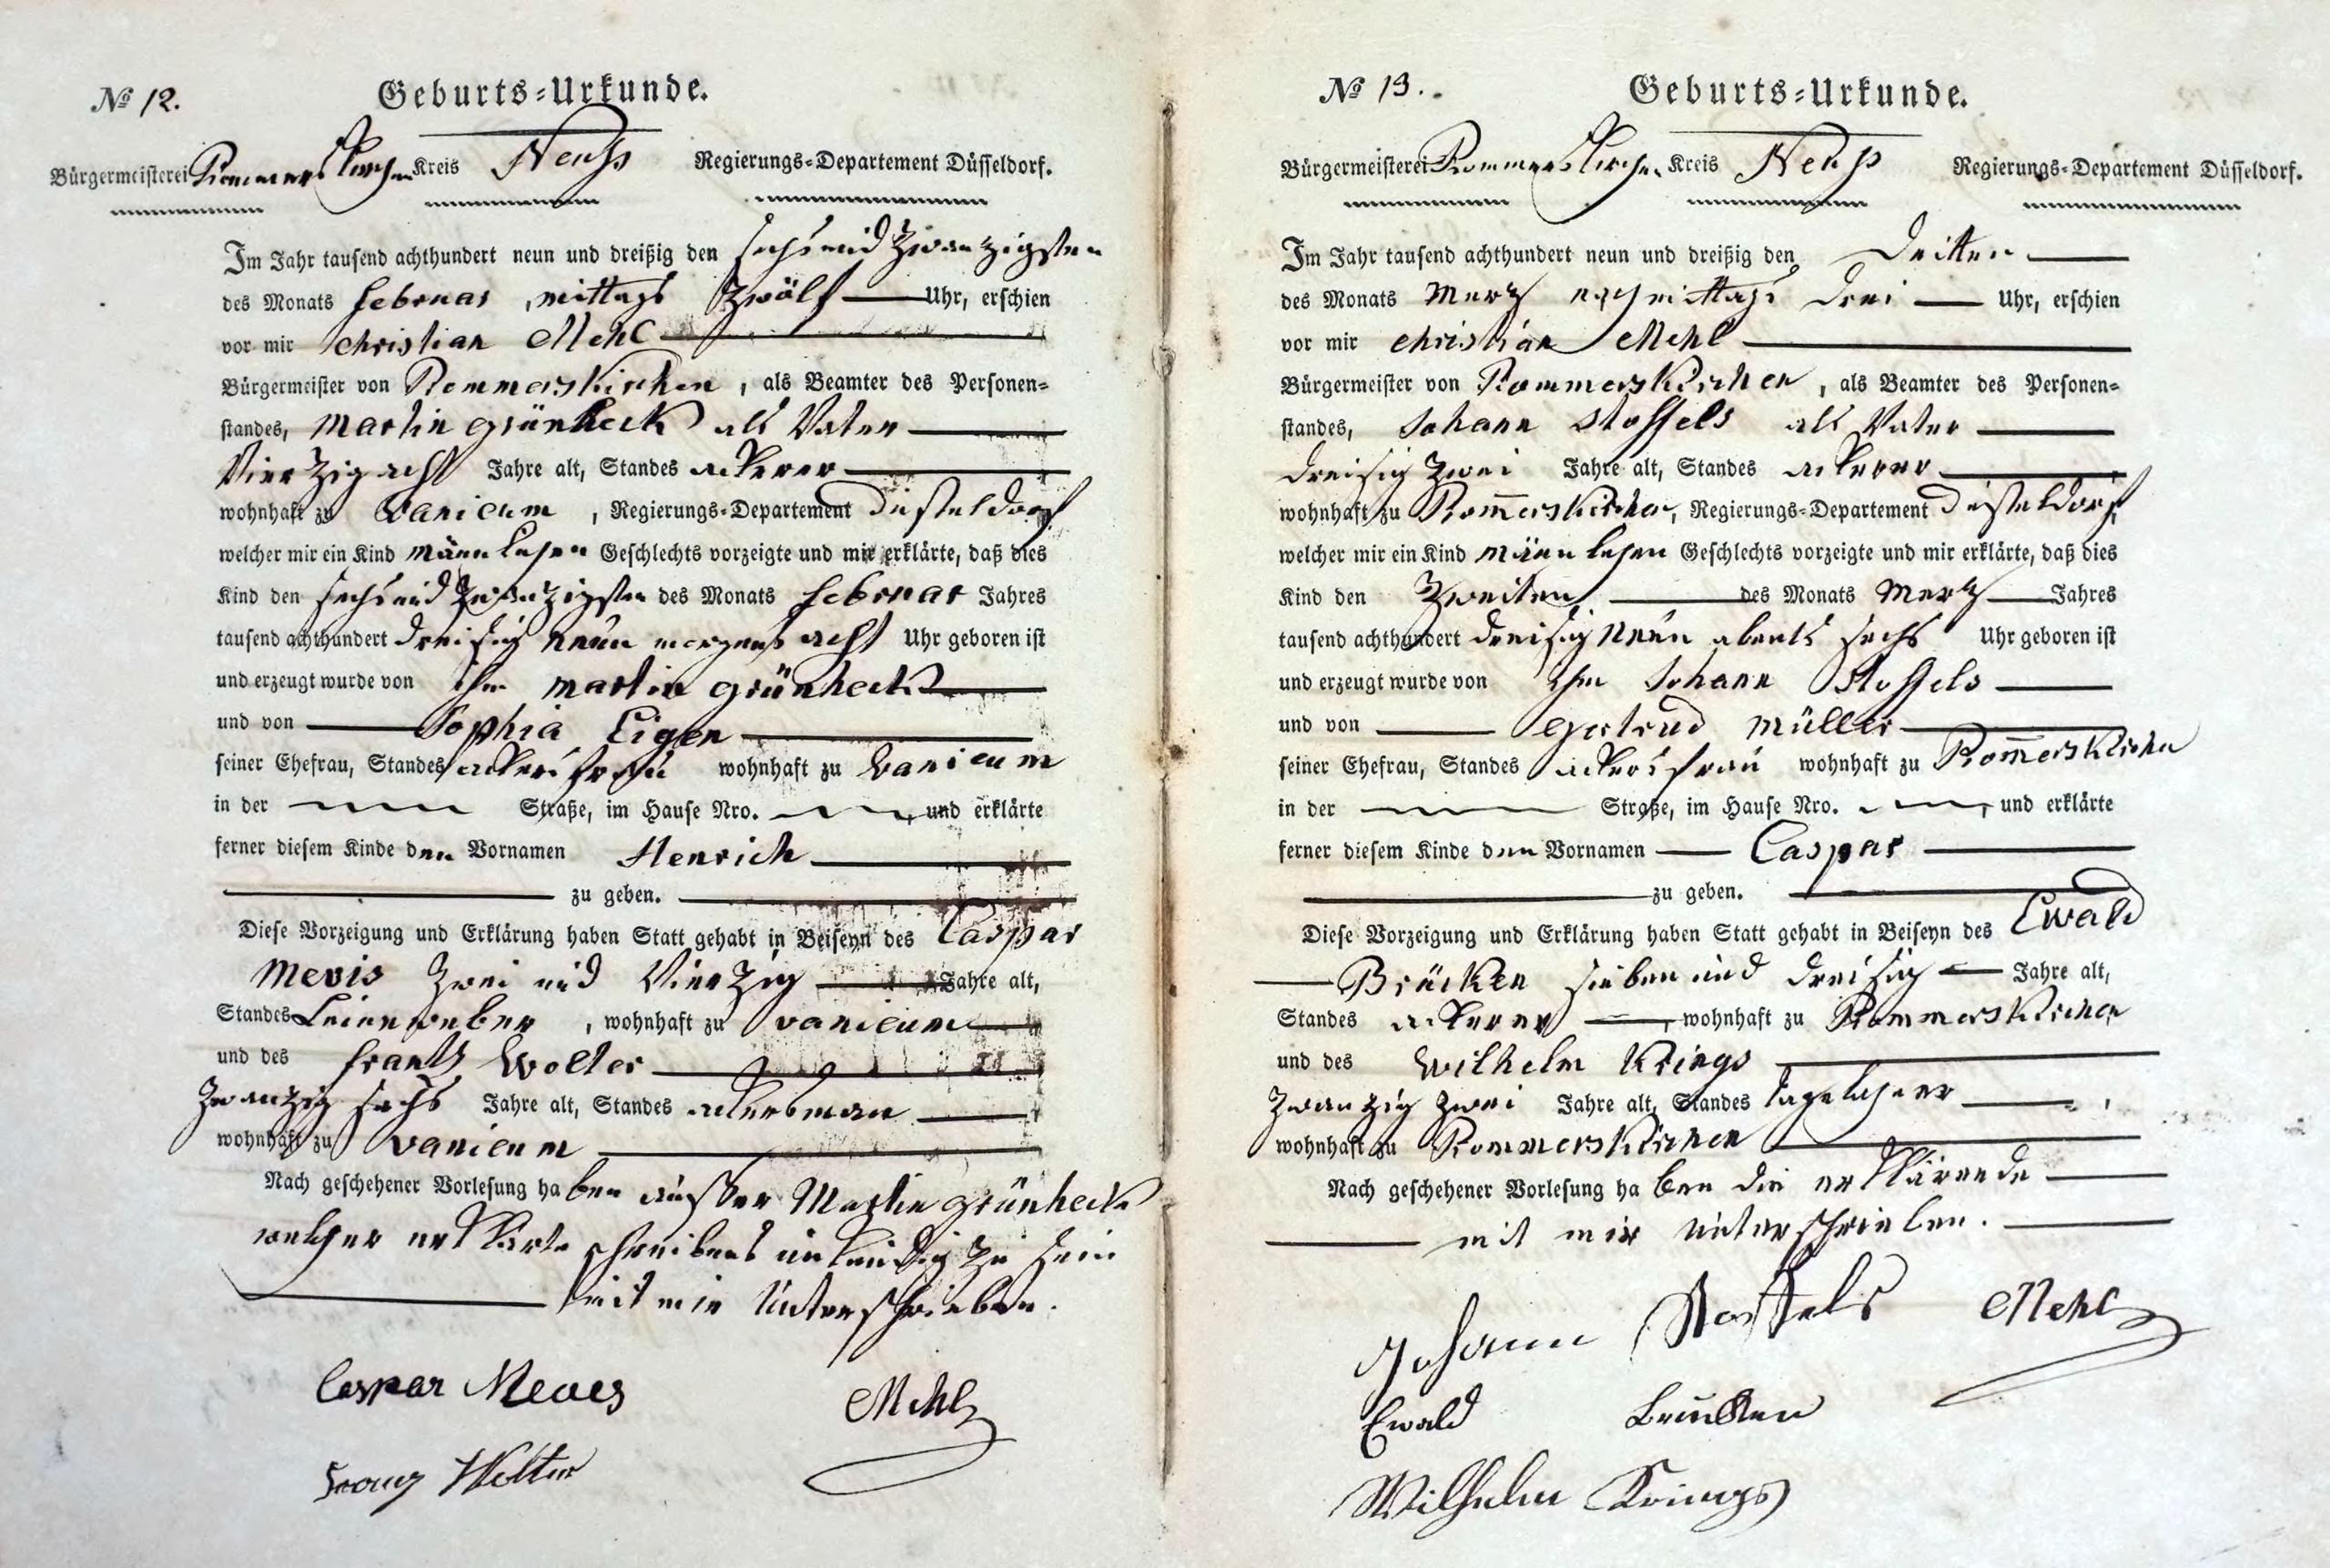 № 12.
Geburts-Urkunde.
Bürgermeisterei Rommerskirchen Kreis Neuss Regierungs-Departement Düsseldorf.
Im Jahr tausend achthundert neun und dreißig den sechs und zwanzigsten
des Monats Februar, mittags zwölf Uhr, erschien
vor mir Christian Mehl
Bürgermeister von Rommerskirchen, als Beamter des Personen-
standes, Martin Grünheck als Vater
Vierzig acht Jahre alt, Standes Ackerer
wohnhaft zu Vanicum, Regierungs-Departement Düsseldorf
welcher mir ein Kind männlichen Geschlechts vorzeigte und mir erklärte, daß dies
Kind den sechs und zwanzigsten des Monats Februar Jahres
tausend achthundert dreisig neun morgens acht Uhr geboren ist
und erzeugt wurde von ihm Martin Grünheck
und von Sophia Eigen
seiner Ehefrau, Standes Ackersfrau wohnhaft zu Vanicum
in der Straße, im Hause Nro. , und erklärte
ferner diesem Kinde den Vornamen Henrich
zu geben.
Diese Vorzeigung und Erklärung haben Statt gehabt in Beiseyn des Caspar
Mevis zwei und Vierzig Jahre alt,
Standes Leinenweber, wohnhaft zu Vanicum
und des Frantz Wolter
zwanzig sechs Jahre alt, Standes Ackersman
wohnhaft zu Vanicum
Nach geschehener Vorlesung haben ausser Martin Grünheck
welcher erklärte schreibens unkundig zu sein
mit mir Unterschrieben.
Caspar Meves
Mehl
Franz Wolter
№ 13.
Geburts-Urkunde.
Bürgermeisterei Rommerskirchen Kreis Neuss Regierungs-Departement Düsseldorf.
Im Jahr tausend achthundert neun und dreißig den Dritten
des Monats Merz nachmittags drei Uhr, erschien
vor mir Christian Mehl
Bürgermeister von Rommerskirchen, als Beamter des Personen-
standes, Johann Stoffels als Vater
dreisig zwei Jahre alt, Standes Ackerer
wohnhaft zu Rom̄erskirchen, Regierungs-Departement Düsseldorf,
welcher mir ein Kind männlichen Geschlechts vorzeigte und mir erklärte, daß dies
Kind den Zweiten des Monats Merz Jahres
tausend achthundert dreisig neun abends sechs Uhr geboren ist
und erzeugt wurde von ihm Johann Stoffels
und von Gertrud Müller
seiner Ehefrau, Standes Ackersfrau wohnhaft zu Rom̄erskirchen
in der Straße, im Hause Nro. , und erklärte
ferner diesem Kinde den Vornamen Caspar
zu geben.
Diese Vorzeigung und Erklärung haben Statt gehabt in Beiseyn des Ewald
Brücken sieben und dreisig Jahre alt,
Standes Ackerer, wohnhaft zu Rommerskirchen
und des Wilhelm Krings
zwanzig zwei Jahre alt, Standes Tagelöhner,
wohnhaft zu Rommerskirchen
Nach geschehener Vorlesung haben die erklärende
mit mir unterschrieben.
Johann Stoffels Mehl
Ewald Brücken
Wilhelm Krings